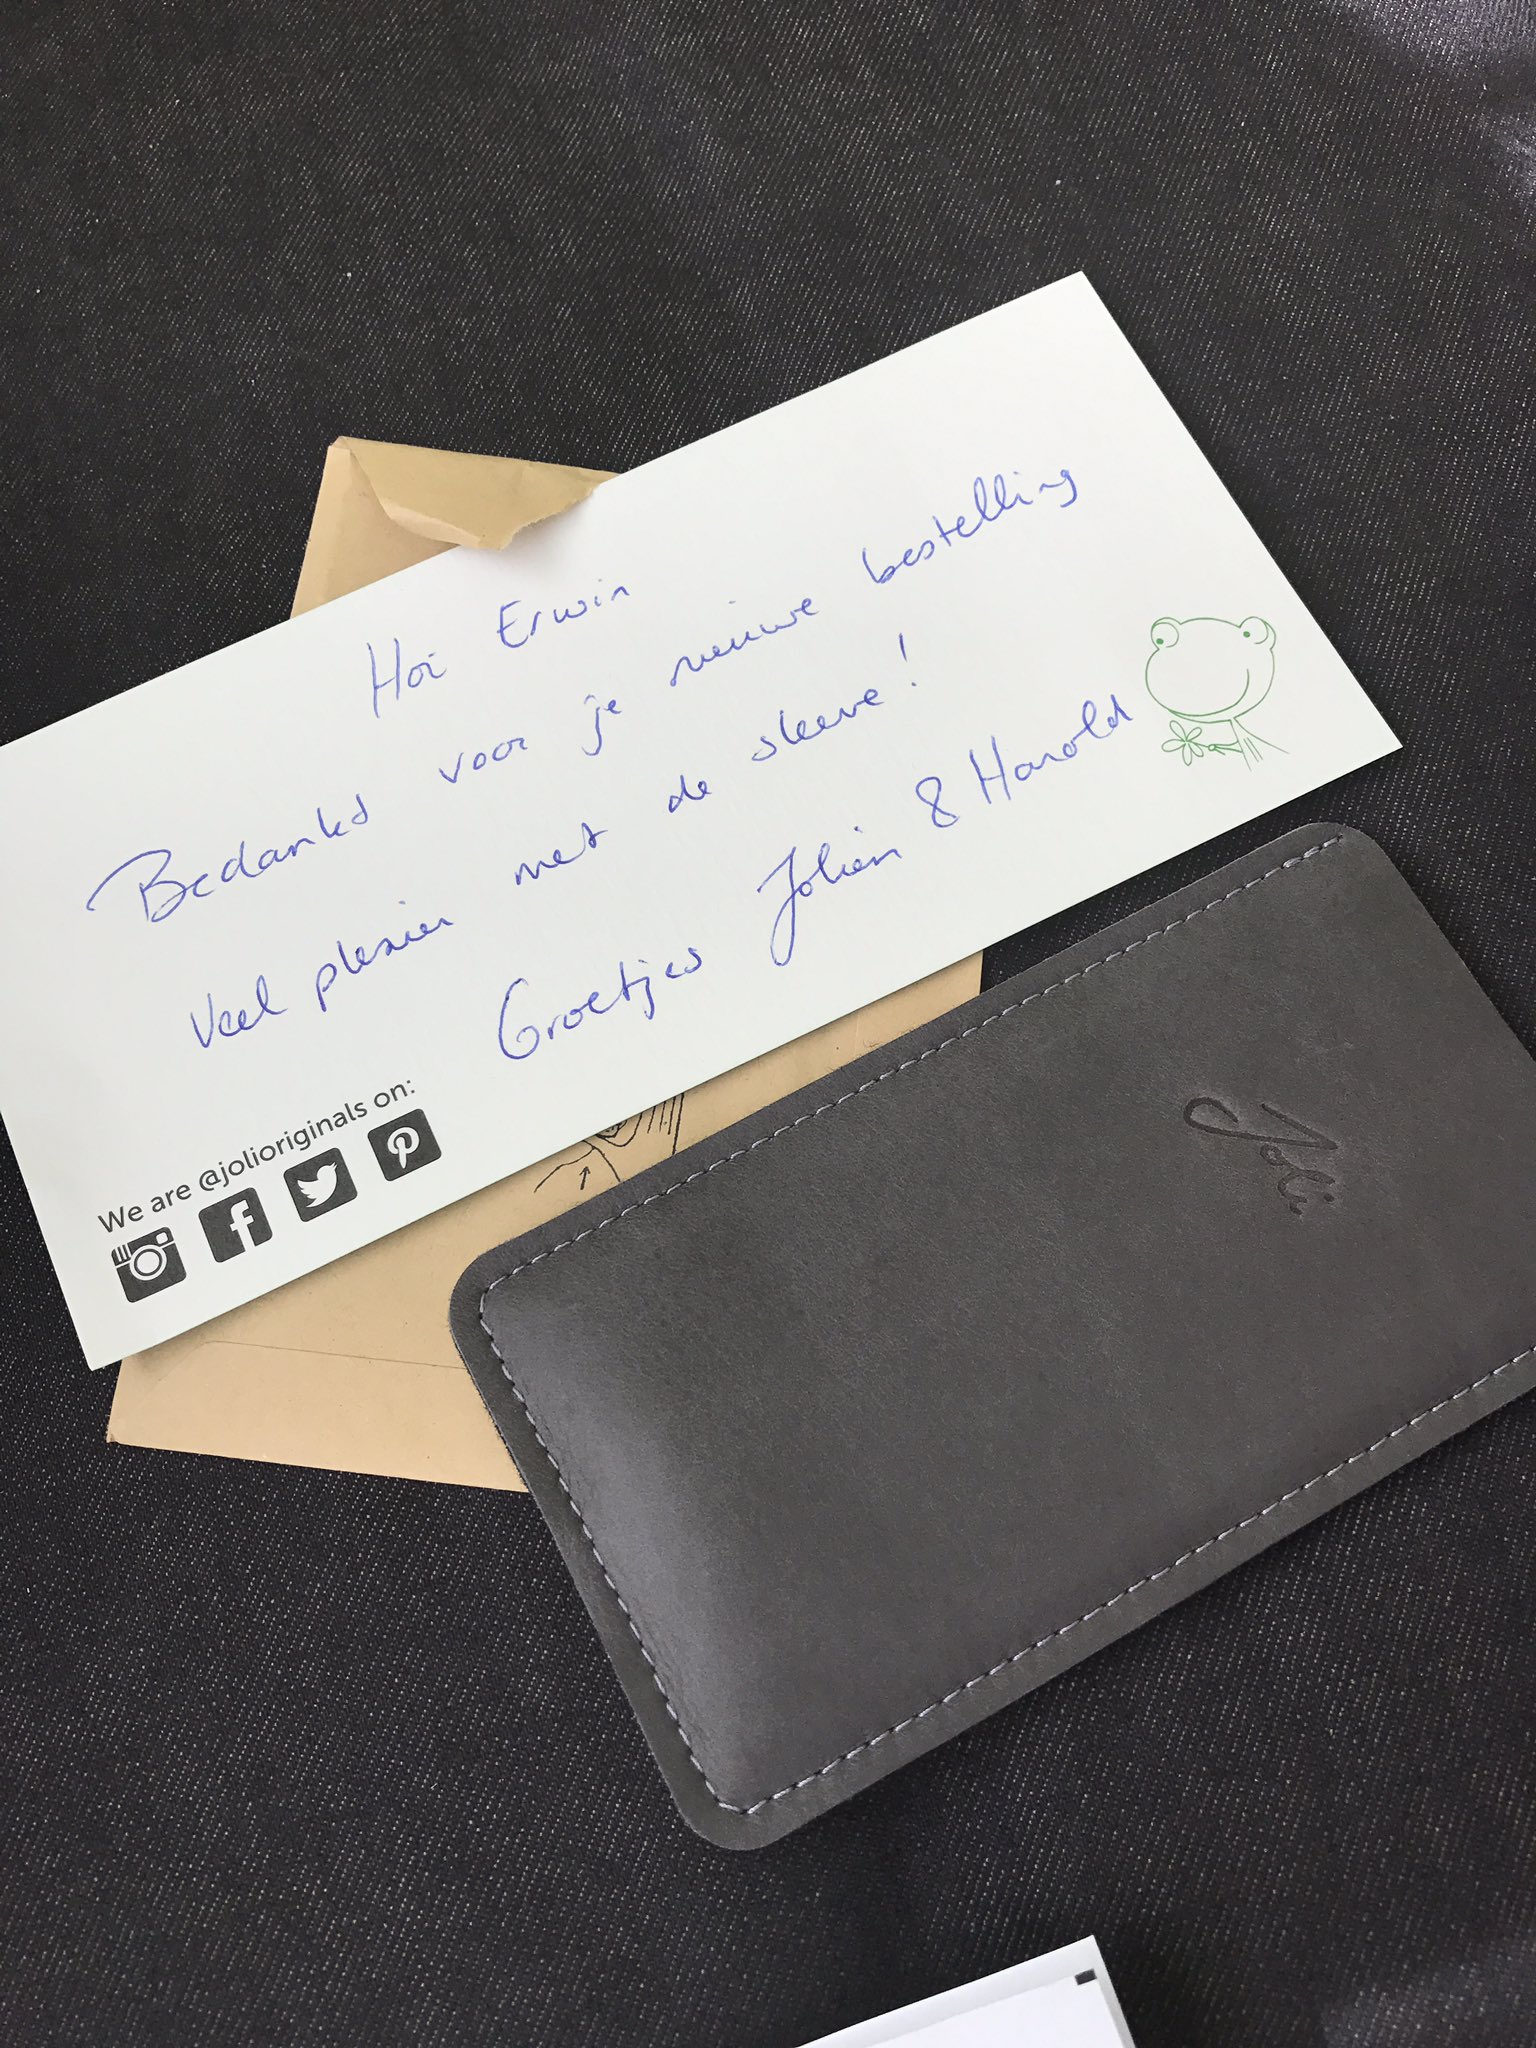 Hoi Erwin
Bedankt voor je nieuwe bestelling
Veel plezier met de sleeve!
Groetjes Jolien & Harold
We are @jolioriginals on:
Joli.